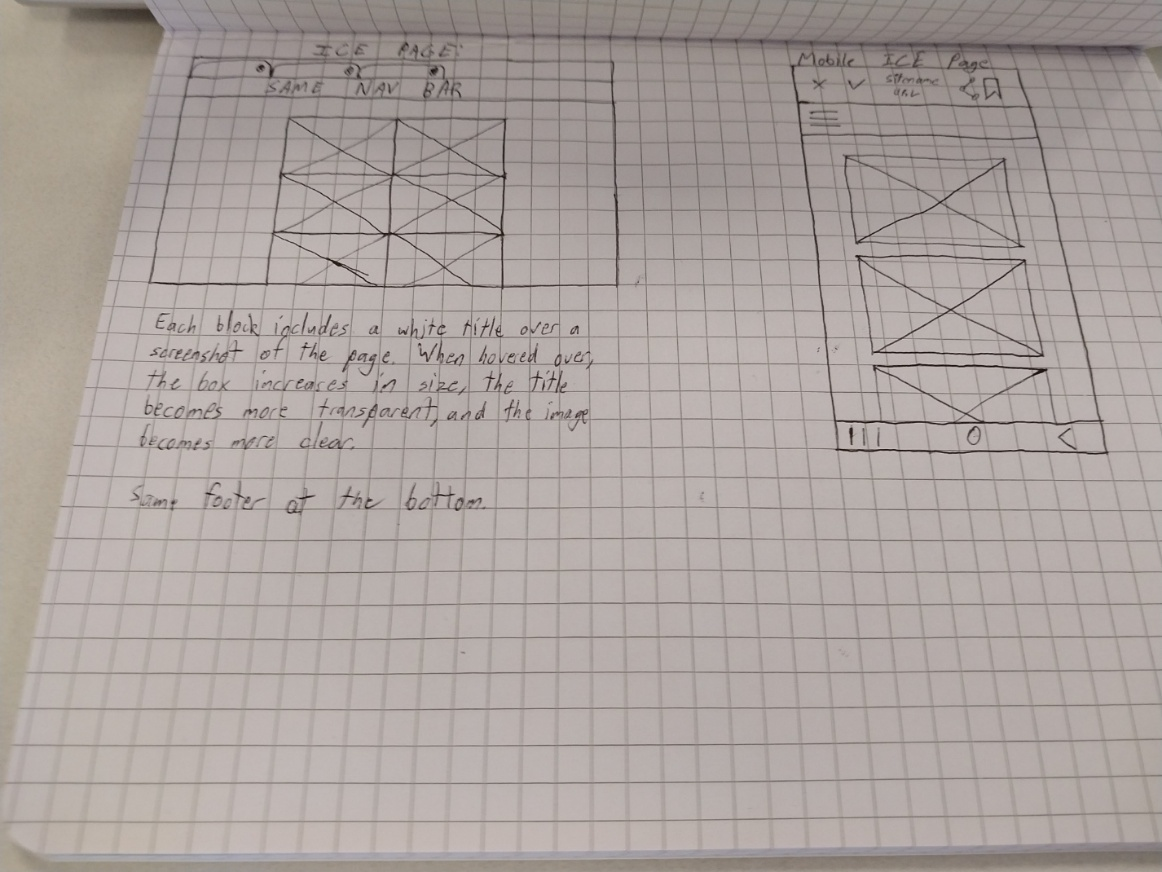 ICE PAGE:
SAME NAV BAR
Each block includes a white title over a
screenshot of the page. When hovered over,
the box increases in size, the title
becomes more transparent, and the image
becomes more clear.
Same footer at the bottom.
Mobile ICE Page